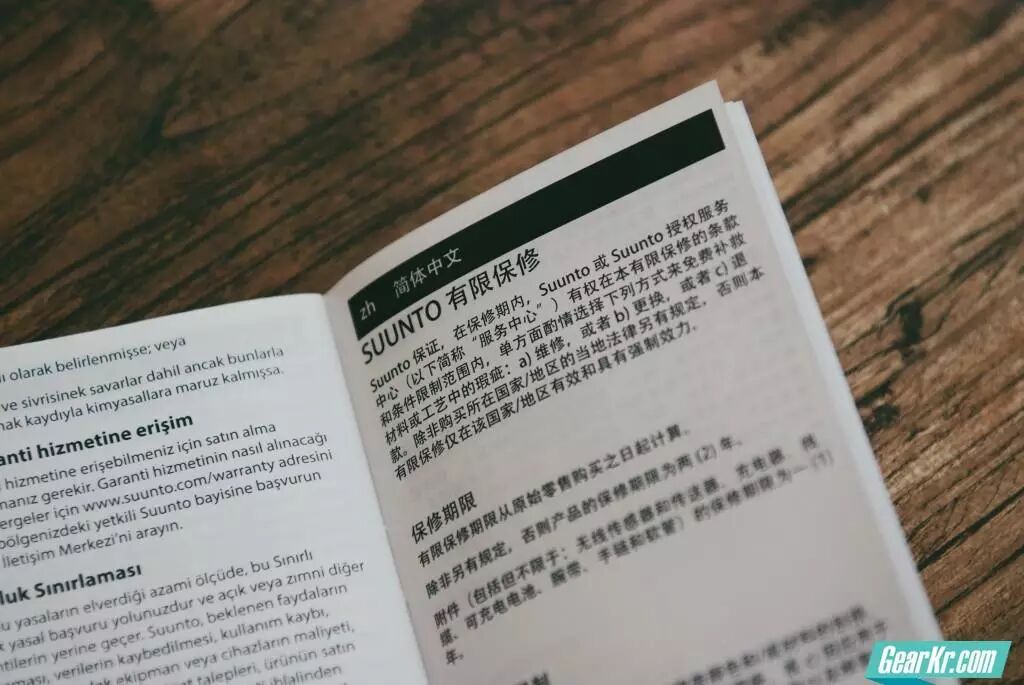 olarak belirlenmişse; veya
ve sivrisinek savarlar dahil ancak bunlarla
kaydıyla kimyasallara maruz kalmışsa.
anti hizmetine erişim
hizmetine erişebilmeniz için satın alma
manız gerekir. Garanti hizmetinin nasıl alınacağı
ergeler için www.suunto.com/warranty adresini
bölgenizdeki yetkili Suunto bayisine başvurun
İletişim Merkezi'ni arayın.
luk Sınırlaması
yasaların elverdiği azami ölçüde, bu Sınırlı
yasal başvuru yolunuzdur ve açık veya zımni diğer
tilerin yerine geçer. Suunto, beklenen faydaların
ması, verilerin kaybedilmesi, kullanım kaybı,
ekipman veya cihazların maliyeti,
talepleri, ürünün satın
ihlalinden
zh 简体中文
SUUNTO 有限保修
Suunto 保证，在保修期内，Suunto 或 Suunto 授权服务
中心（以下简称“服务中心”）有权在本有限保修的条款
和条件限制范围内，单方面酌情选择下列方式来免费补救
材料或工艺中的瑕疵：a) 维修，或者 b) 更换，或者 c) 退
款。除非购买所在国家/地区的当地法律另有规定，否则本
有限保修仅在该国家/地区有效和具有强制效力。
保修期限
有限保修期限从原始零售购买之日起计算。
除非另有规定，否则产品的保修期限为两 (2) 年。
附件（包括但不限于：无线传感器和传送器、充电器、线
缆、可充电电池、腕带、手链和软管）的保修期限为一 (1)
年。
GearKr.com